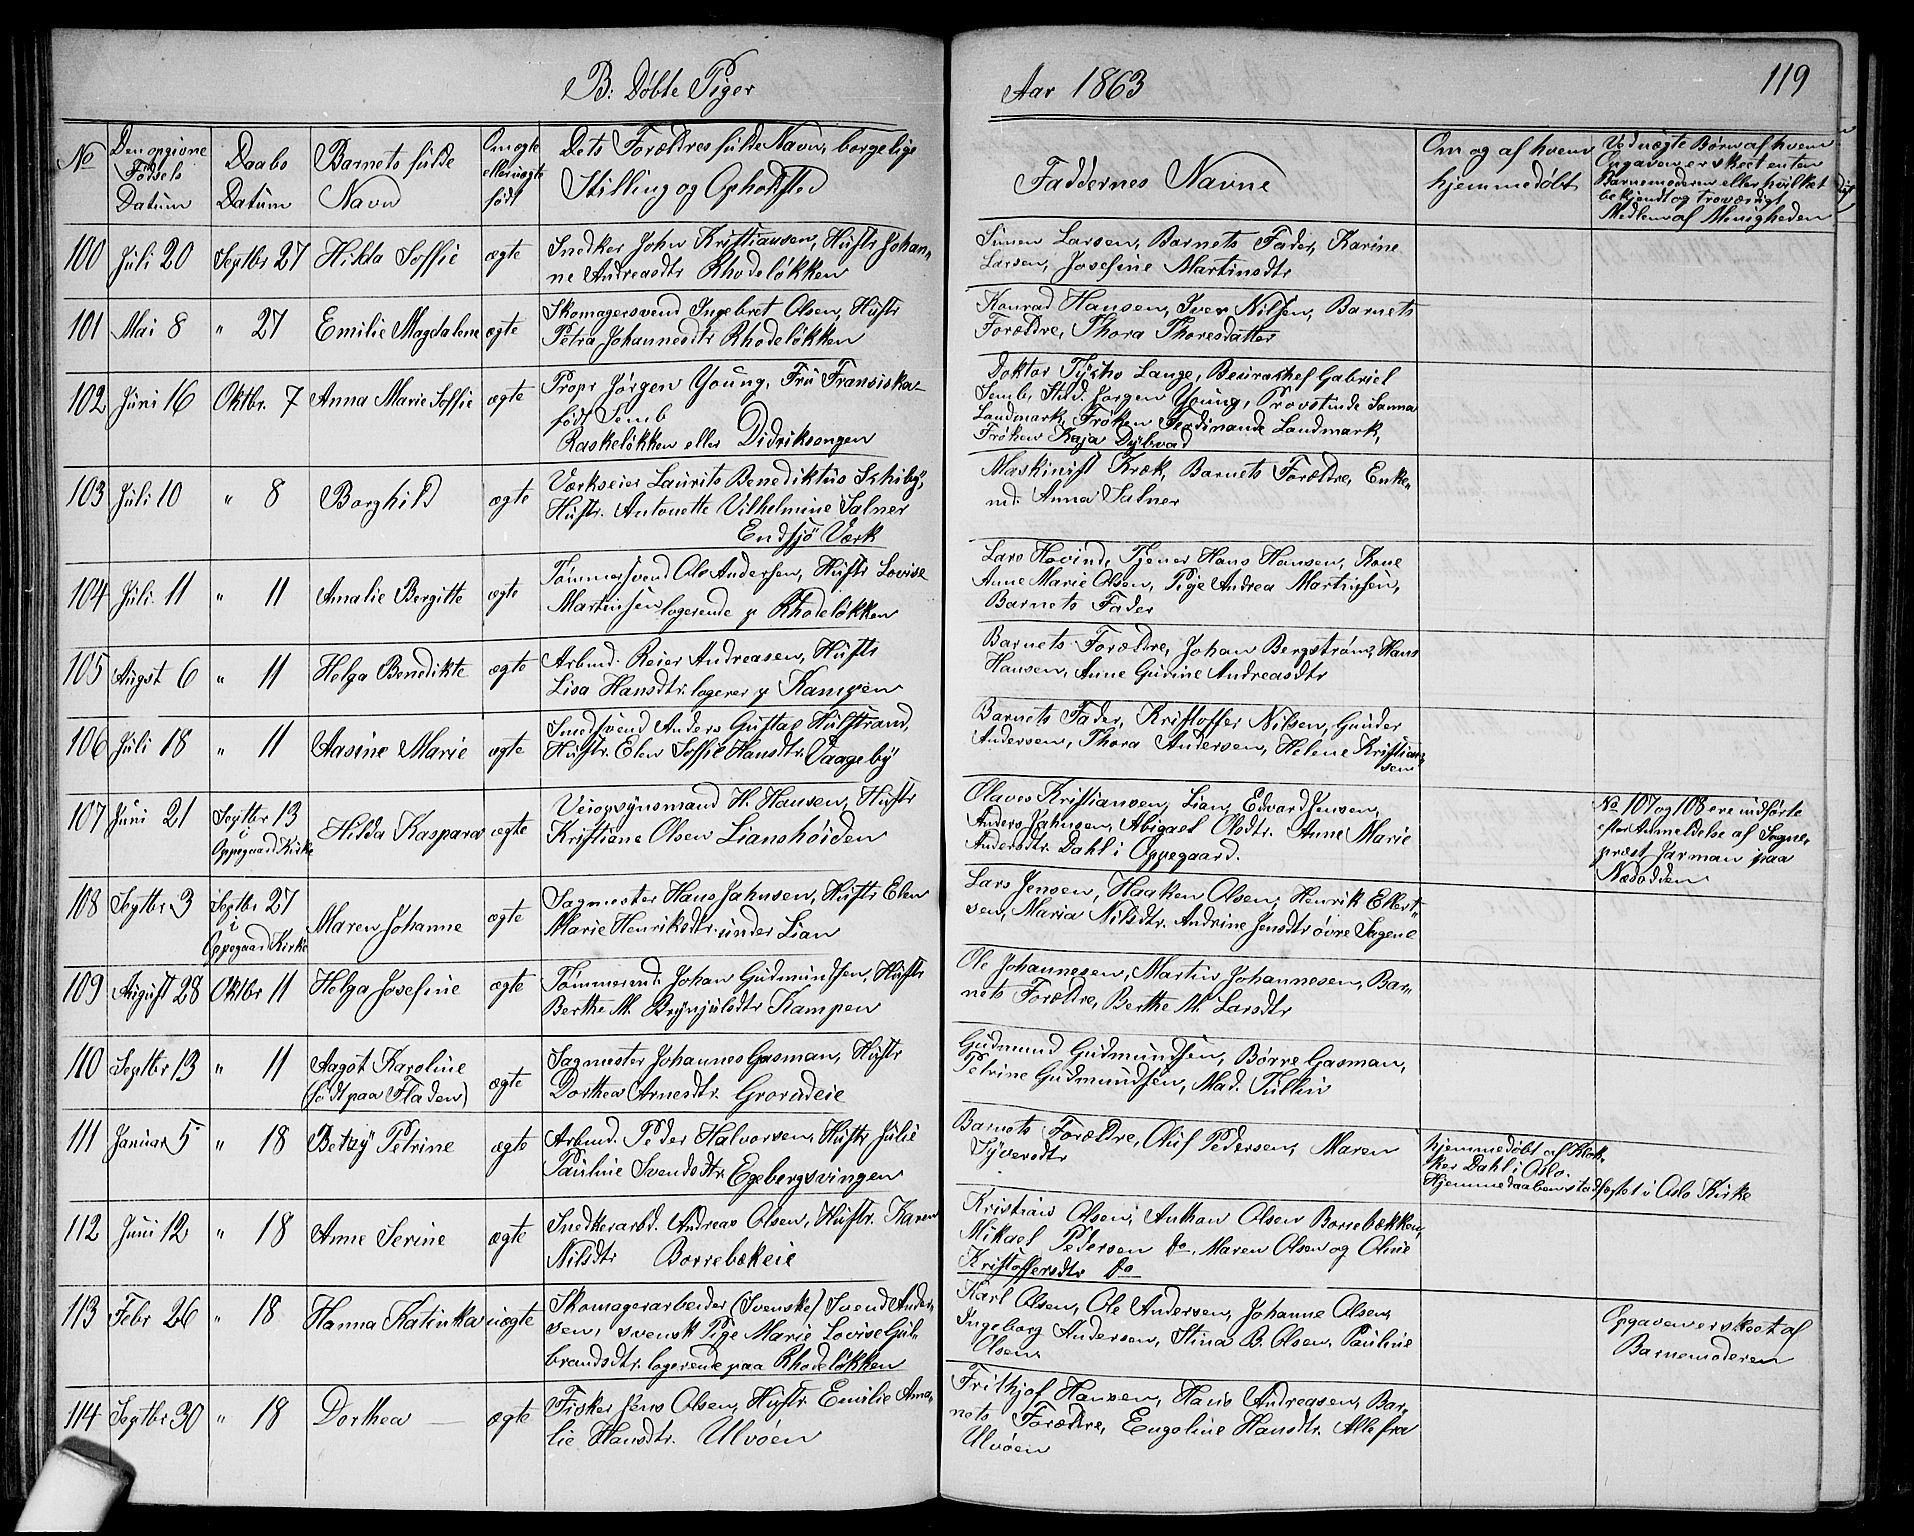 B. Døbte Piger
Aar 1863
119
No
Den opgivne
Fødsels
Datum
Daabs
Datum
Barnets fulde
Navn
Om ægte
eller uægte
født
Dets Forældres fulde Navn, borgelige
Stilling og Opholdsted
Faddernes Navne
Om og af hvem
hjemmedøbt
Ved uægte Børn af hvem
Opgaven er skeet enten
Barnemoderen eller hvilket
bekjendt og troværdigt
Medlem af Menigheden
100 Juli 20 Septbr 27 Hilda Soffie ægte
Snedker John Kristiansen, Hustr Johan-
ne Andreasdtr Rhodeløkken
Simen Larsen, Barnets Fader, Karine
Larsen, Josefine Martinsdtr
101 Mai 8 " 27 Emilie Magdalene ægte
Skomagersvend Ingebret Olsen, Hustr
Petra Johannesdtr Rhodeløkken
Konrad Hansen, Iver Nilsen, Barnets
Forældre, Thora Thoresdatter
102 Juni 16 Oktbr. 7 Anna Marie Soffie ægte
Propr Jørgen Young, Fru Fransiska
født Semb
Raskeløkken eller Didriksongen
Doktor Tycho Lange, Beuraschef Gabriel
Semb, Stud. Jørgen Young, Provstinde Sanna
Landmark, Frøken Ferdinande Landmark,
Frøken Kaja Dybvad
103 Juli 10 " 8 Borghild ægte
Værkseier Laurits Benediktus Schiby,
Hustr. Antonette Vilhelmine Salner
Endsjø Værk
Maskinist Kræk, Barnets Forældre, Enke-
md. Anna Salner
104 Juli 11 " 11 Amalie Bergitte ægte
Tømmersvend Ole Andersen, Hustr Lovise
Martinsen logerende p Rhodeløkken
Lars Hovind, Tjener Hans Hansen, Kone
Anne Marie Olsen, Pige Andrea Martinsen,
Barnets Fader
105 Augst 6 " 11 Helga Benedikte ægte
Arbmd. Reier Andreasen, Hustr
Lisa Hansdtr. logerer p Kampen
Barnets Forældre, Johan Bergstrøm, Hans
Hansen, Anne Gurine Andreasdtr
106 Juli 18 " 11 Aasine Marie ægte
Smedsvend Anders Gustav Hulstrand,
Hustr. Elen Soffie Hansdtr. Vaageby
Barnets Fader, Kristoffer Nilsen, Gunder
Andersen, Thora Andersen, Helene Kristian-
sen
107 Juni 21 Septbr 13
i
Oppegaard Kirke
Hilda Kaspara ægte
Veiopsynsmand H. Hansen, Hustr
Kristiane Olsen Lianshøiden
Olaves Kristiansen, Lian, Edvard Jensen,
Anders Jahnsen, Abigael Olsdtr. Anne Marie
Andersdtr. Dahl i Oppegaard.
No 107 og 108 ere indførte
efter Anmeldelse af Sogne-
præst Jarman paa
Næsodden
108 Septbr 3 Septbr 27
i
Oppegaard Kirke
Maren Johanne ægte
Sagmester Hans Jahnsen, Hustr Elen
Marie Henriksdtr. under Lian
Lars Jensen, Haaken Olsen, Henrik Ellert-
sen, Maria Nilsdtr. Andrine Jensdtr øvre Sagene
109 August 28 Oktbr 11 Helga Josefine ægte
Tømmermd. Johan Gudmundsen, Hustr
Berthe M. Brynjulsdtr Kampen
Ole Johannesen, Martin Johannesen, Bar-
nets Forældre, Berthe M. Larsdtr
110 Septbr 13 " 11 Aagot Karoline
(født paa Fladen)
ægte
Sagmester Johannes Gasman, Hustr
Dorthea Arnesdtr. Grorudeie
Gudmund Gudmundsen, Børre Gasman,
Petrine Gudmundsen, Mad. Tullin
111 Januar 5 " 18 Betsy Petrine ægte
Arbmd. Peder Halvorsen, Hustr Julie
Pauline Svendsdtr. Egebergsvingen
Barnets Forældre, Oluf Pedersen, Maren
Syversdtr
hjemmedøbt af Klok-
ker Dahl i Oslo.
Hjemmedaaben stadfæstet i Oslo Kirke
112 Juni 12 " 18 Anne Serine ægte
Snedkerarbd. Andreas Olsen, Hustr. Karen
Nilsdtr Borrebækeie
Kristian Olsen, Anthon Olsen Borrebækken,
Mikael Pedersen do, Maren Olsen og Oline
Kristoffersdtr do
113 Febr 26 " 18 Hanna Katinka uægte
Skomagerarbeider (Svenske) Svend Ander-
sen, svensk Pige Marie Lovise Gul-
brandsdtr. logerende paa Rhodeløkken
Karl Olsen, Ole Andersen, Johanne Olsen,
Ingeborg Andersen, Stina B. Olsen, Pauline
Olsen
Opgaven er skeet af
Barnemoderen
114 Septbr 30 " 18 Dorthea — ægte
Fisker Jens Olsen, Hustr. Emilie Ama-
lie Hansdtr. Ulvøen
Frithjof Hansen, Hans Andreasen, Bar-
nets Forældre, Engeline Hansdtr. Alle fra
Ulvøen